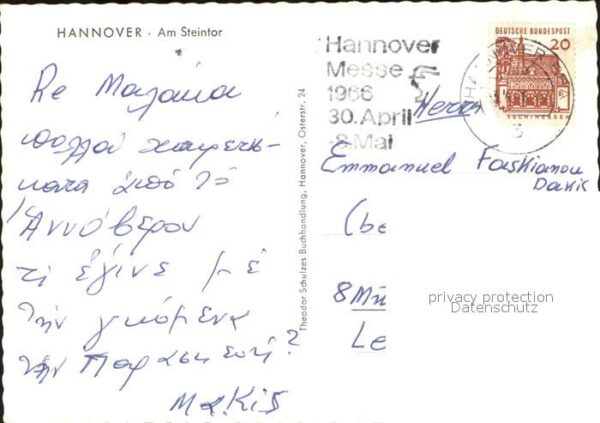 HANNOVER · Am Steintor
Ρε Μαλάκα
πολλά χαιρετι-
σματα από το
Αννόβερον
τι έγινε με
την γκόμενα
την Παρασκευή?
Μακις
Theodor Schulzes Buchhandlung, Hannover, Osterstr. 24
Hannover
Messe
1966
30. April
-8. Mai
DEUTSCHE BUNDESPOST
20
HANNOVER
3
Herrn
Emmanuel
(be
8 Mü
Le
privacy protection
Datenschutz